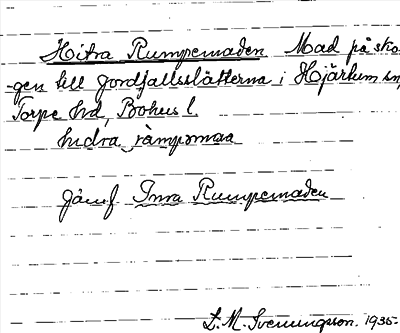 Hitra Rumpemaden Mad på sko-
-gen till Jordfallsslätterna i Hjärtum sn,
Torpe hd, Bohus l.
hidra rämpomaa
Jämf Inra Rumpemaden
L. M. Svenungsson. 1935.